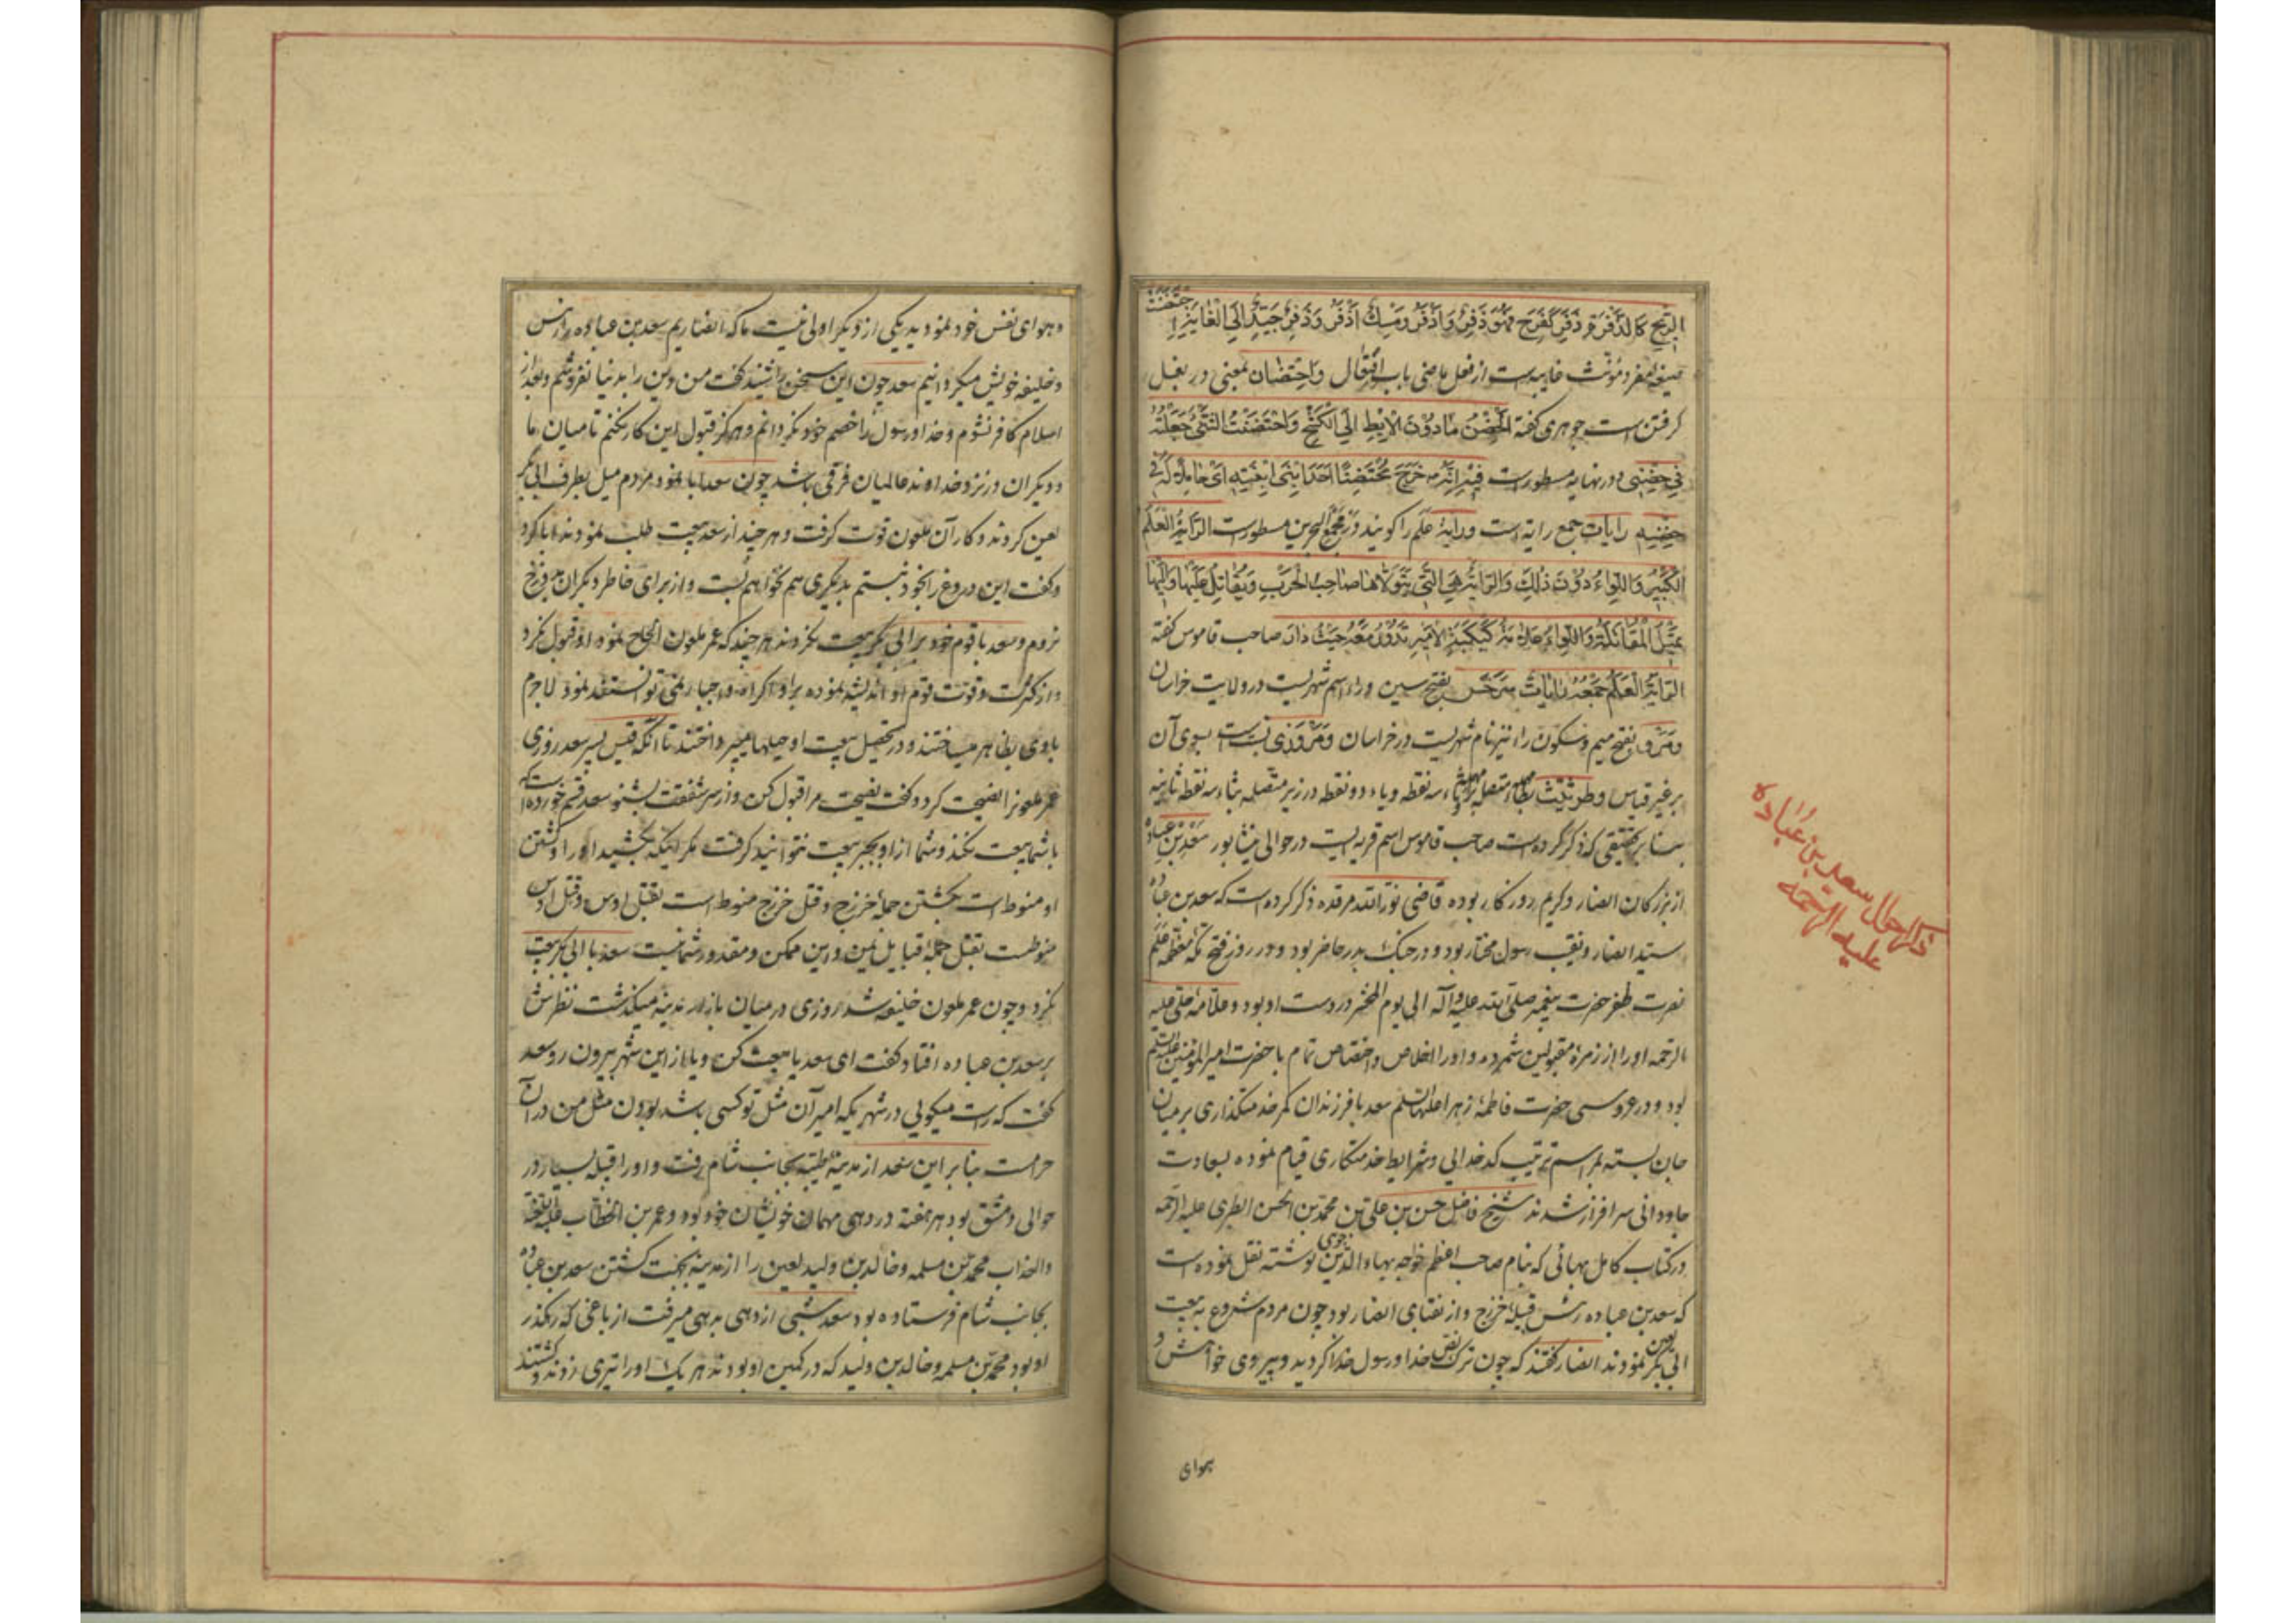 الریح کالدفر و ذفر کفرح فهو ذفر و اذفر و مسك اذفر و ذفر جید الی الغایة احتضنت
صیغه مفرد مؤنث غایبه است از فعل ماضی باب افتعال و احتضان بمعنی در بغل
کرفتن است جوهری کفته الحضن ما دون الابط الی الکشح و احتضنت الشئ جعلته
فی حضنی و در نهایه مسطور است فیه انه خرج محتضنا احد ابنی ابنته ای حاملا له فی
حضنه رایات جمع رایة است و رایة علم را کویند و در مجمع البحرین مسطور است الرایة العلم
الکبیر و اللواء دون ذلك و الرایة هی التی یتولاها صاحب الحرب و یقاتل علیها و الیها
تمیل المقاتلة و اللواء علامة کبکبة الامیر تدور معه حیث دار صاحب قاموس کفته
الرایة العلم جمعه رایات سرخس بفتح سین و راء اسم شهریست در ولایت خراسان
و مرو بفتح میم و سکون راء نیز نام شهریست در خراسان و مروزی نسبت است بسوی آن
بر غیر قیاس و طرثیث بطاء مهمله متصله براء مهمله و ثاء سه نقطه و یاء دو نقطه در زیر متصله بثاء سه نقطه ثانیه
بنا بر تحقیقی که ذکر کرده است صاحب قاموس اسم قریه ایست در حوالی نیشابور سعد بن عباده
از بزرکان انصار و کریم روزکار بوده قاضی نور الله مرقده ذکر کرده است که سعد بن عباده
سید انصار و نقیب رسول مختار بود و در جنك بدر حاضر بود و در روز فتح مکه معظمه علم
نصرت ظفر حضرت پیغمبر صلی الله علیه و آله الی یوم المحشر در دست او بود و علامه حلی علیه
الرحمه او را از زمرۀ مقبولین شمرده و او را اخلاص و اختصاص تمام با حضرت امیر المؤمنین علیه السلم
بود و در عروسی حضرت فاطمۀ زهرا علیها السلم سعد با فرزندان کمر خدمتکذاری بر میان
جان بسته بمراسم ترتیب کدخدائی و شرایط خدمتکاری قیام نموده بسعادت
جاودانی سرافراز شدند شیخ فاضل حسن بن علی بن محمد بن الحسن الطبری علیه الرحمه
در کتاب کامل بهائی که بنام صاحب اعظم خواجه بهاء الدین جوینی نوشته نقل نموده است
که سعد بن عباده رئیس قبیلۀ خزرج و از نقبای انصار بود چون مردم شروع به بیعت
ابی بکر لعین نمودند انصار کفتند که چون ترك نص خدا و رسول خدا کردید و پیروی خواهش و
بهوای
ذکر احوال سعد بن عباده
علیه الرحمه
و هوای نفس خود نمودید یکی از دیکر اولی نیست ما که انصاریم سعد بن عباده را رئیس
و خلیفه خویش میکردانیم سعد چون این سخن را شنید کفت من دین را بدنیا نفروشم و بعد از
اسلام کافر نشوم و خدا و رسول را خصم خود نکردانم و هرکز قبول این کار نکنم تا میان ما
و دیکران در نزد خداوند عالمیان فرقی باشد چون سعد ابا نمود مردم میل بطرف ابی بکر
لعین کردند و کار آن ملعون قوت کرفت و هر چند از سعد بیعت طلب نمودند ابا کرد
و کفت این دروغ را بخود نبستم بدیکری هم نخواهم بست و از برای خاطر دیکران بدوزخ
نروم و سعد با قوم خود برابی بکر بیعت نکردند هر چند که عمر ملعون الحاح نمود او قبول نکرد
و از کثرت و قوت قوم او اندیشه نموده بر او اکراه و اجبار نمی توانستند نمود لاجرم
با وی بظاهر میساختند و در تحصیل بیعت او حیلها میپرداختند تا انکه قیس پسر سعد روزی
عمر ملعون را نصیحت کرد و کفت نصیحت مرا قبول کن و از سر شفقت بشنو سعد قسم خورده است که
با شما بیعت نکند و شما از او بجبر بیعت نتوانید کرفت مکر اینکه بکشید او را و کشتن
او منوط است بکشتن جملۀ خزرج و قتل خزرج منوط است بقتل اوس و قتل اوس
منوطست بقتل جملۀ قبایل یمن و این ممکن و مقدور شما نیست سعد با ابی بکر بیعت
نکرد و چون عمر ملعون خلیفه شد روزی در میان بازار مدینه میکذشت نظرش
بر سعد بن عباده افتاد کفت ای سعد یا بیعت کن و یا از این شهر بیرون رو سعد
کفت که راست میکوئی در شهریکه امیر آن مثل تو کسی باشد بودن مثل من در آن
حرامست بنا بر این سعد از مدینۀ طیبه بجانب شام رفت و او را قبیله بسیار در
حوالی دمشق بود هر هفته در دهی مهمان خویشان خود بود و عمر بن الخطاب علیه اللعنة
والعذاب محمد بن مسلمه و خالد بن ولید لعین را از مدینه بجهت کشتن سعد بن عباده
بجانب شام فرستاده بود سعد شبی از دهی بدهی میرفت از باغی که رهکذر
او بود محمد بن مسلمه و خالد بن ولید که در کمین او بودند هر یك او را تیری زدند و کشتند